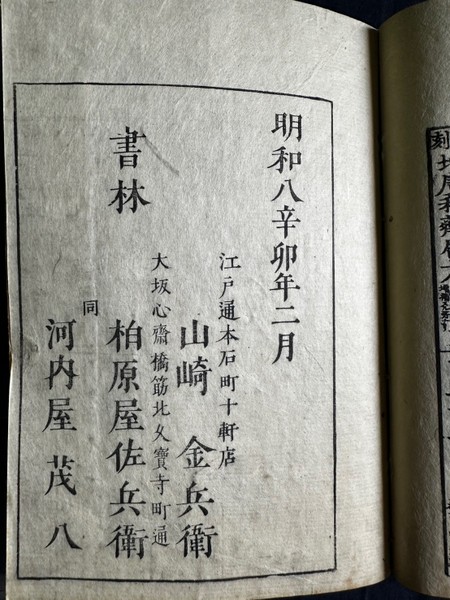 明和八辛卯年二月
江戸通本石町十軒店
山崎金兵衛
大坂心齋橋筋北久寳寺町通
書林
柏原屋佐兵衛
同
河内屋茂八